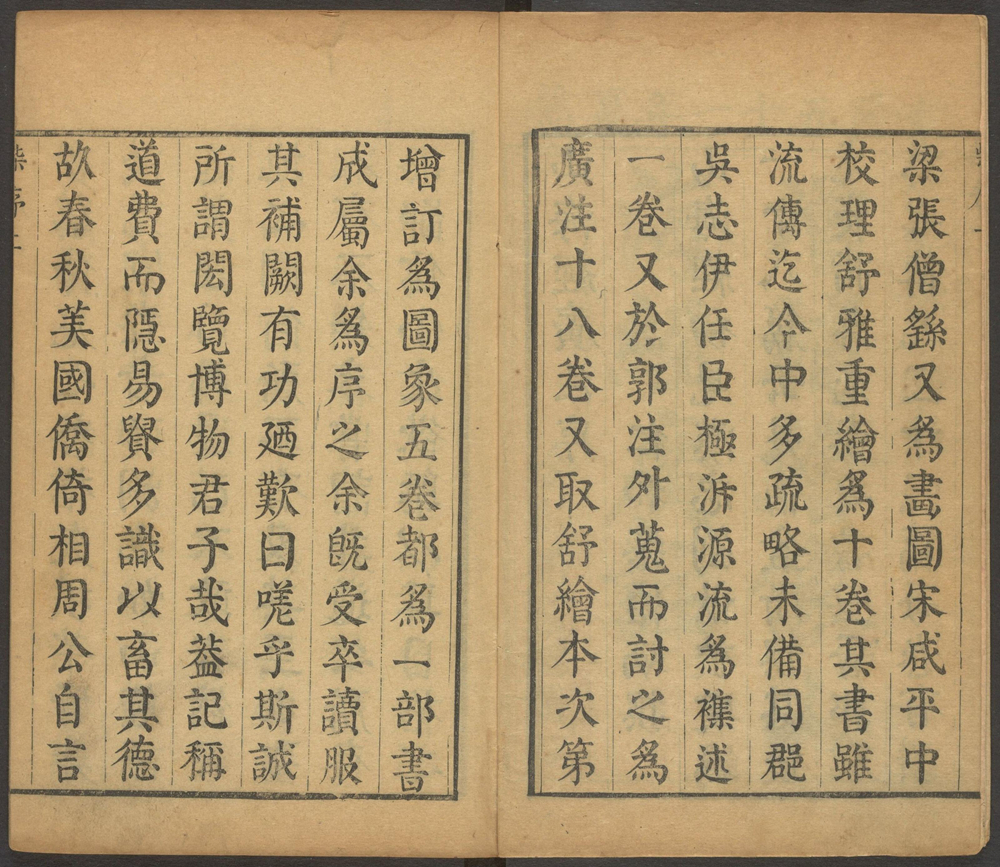 梁張僧繇又為畫圖宋咸平中
校理舒雅重繪為十卷其書雖
流傳迄今中多疏略未備同郡
吳志伊任臣極泝源流為襍述
一卷又於郭注外蒐而討之為
廣注十八卷又取舒繪本次第
增訂為圖象五卷都為一部書
成屬余為序之余旣受卒讀服
其補闕有功廼歎曰嗟乎斯誠
所謂閎覽博物君子哉葢記稱
道費而隱易贊多識以畜其德
故春秋美國僑倚相周公自言
柴序